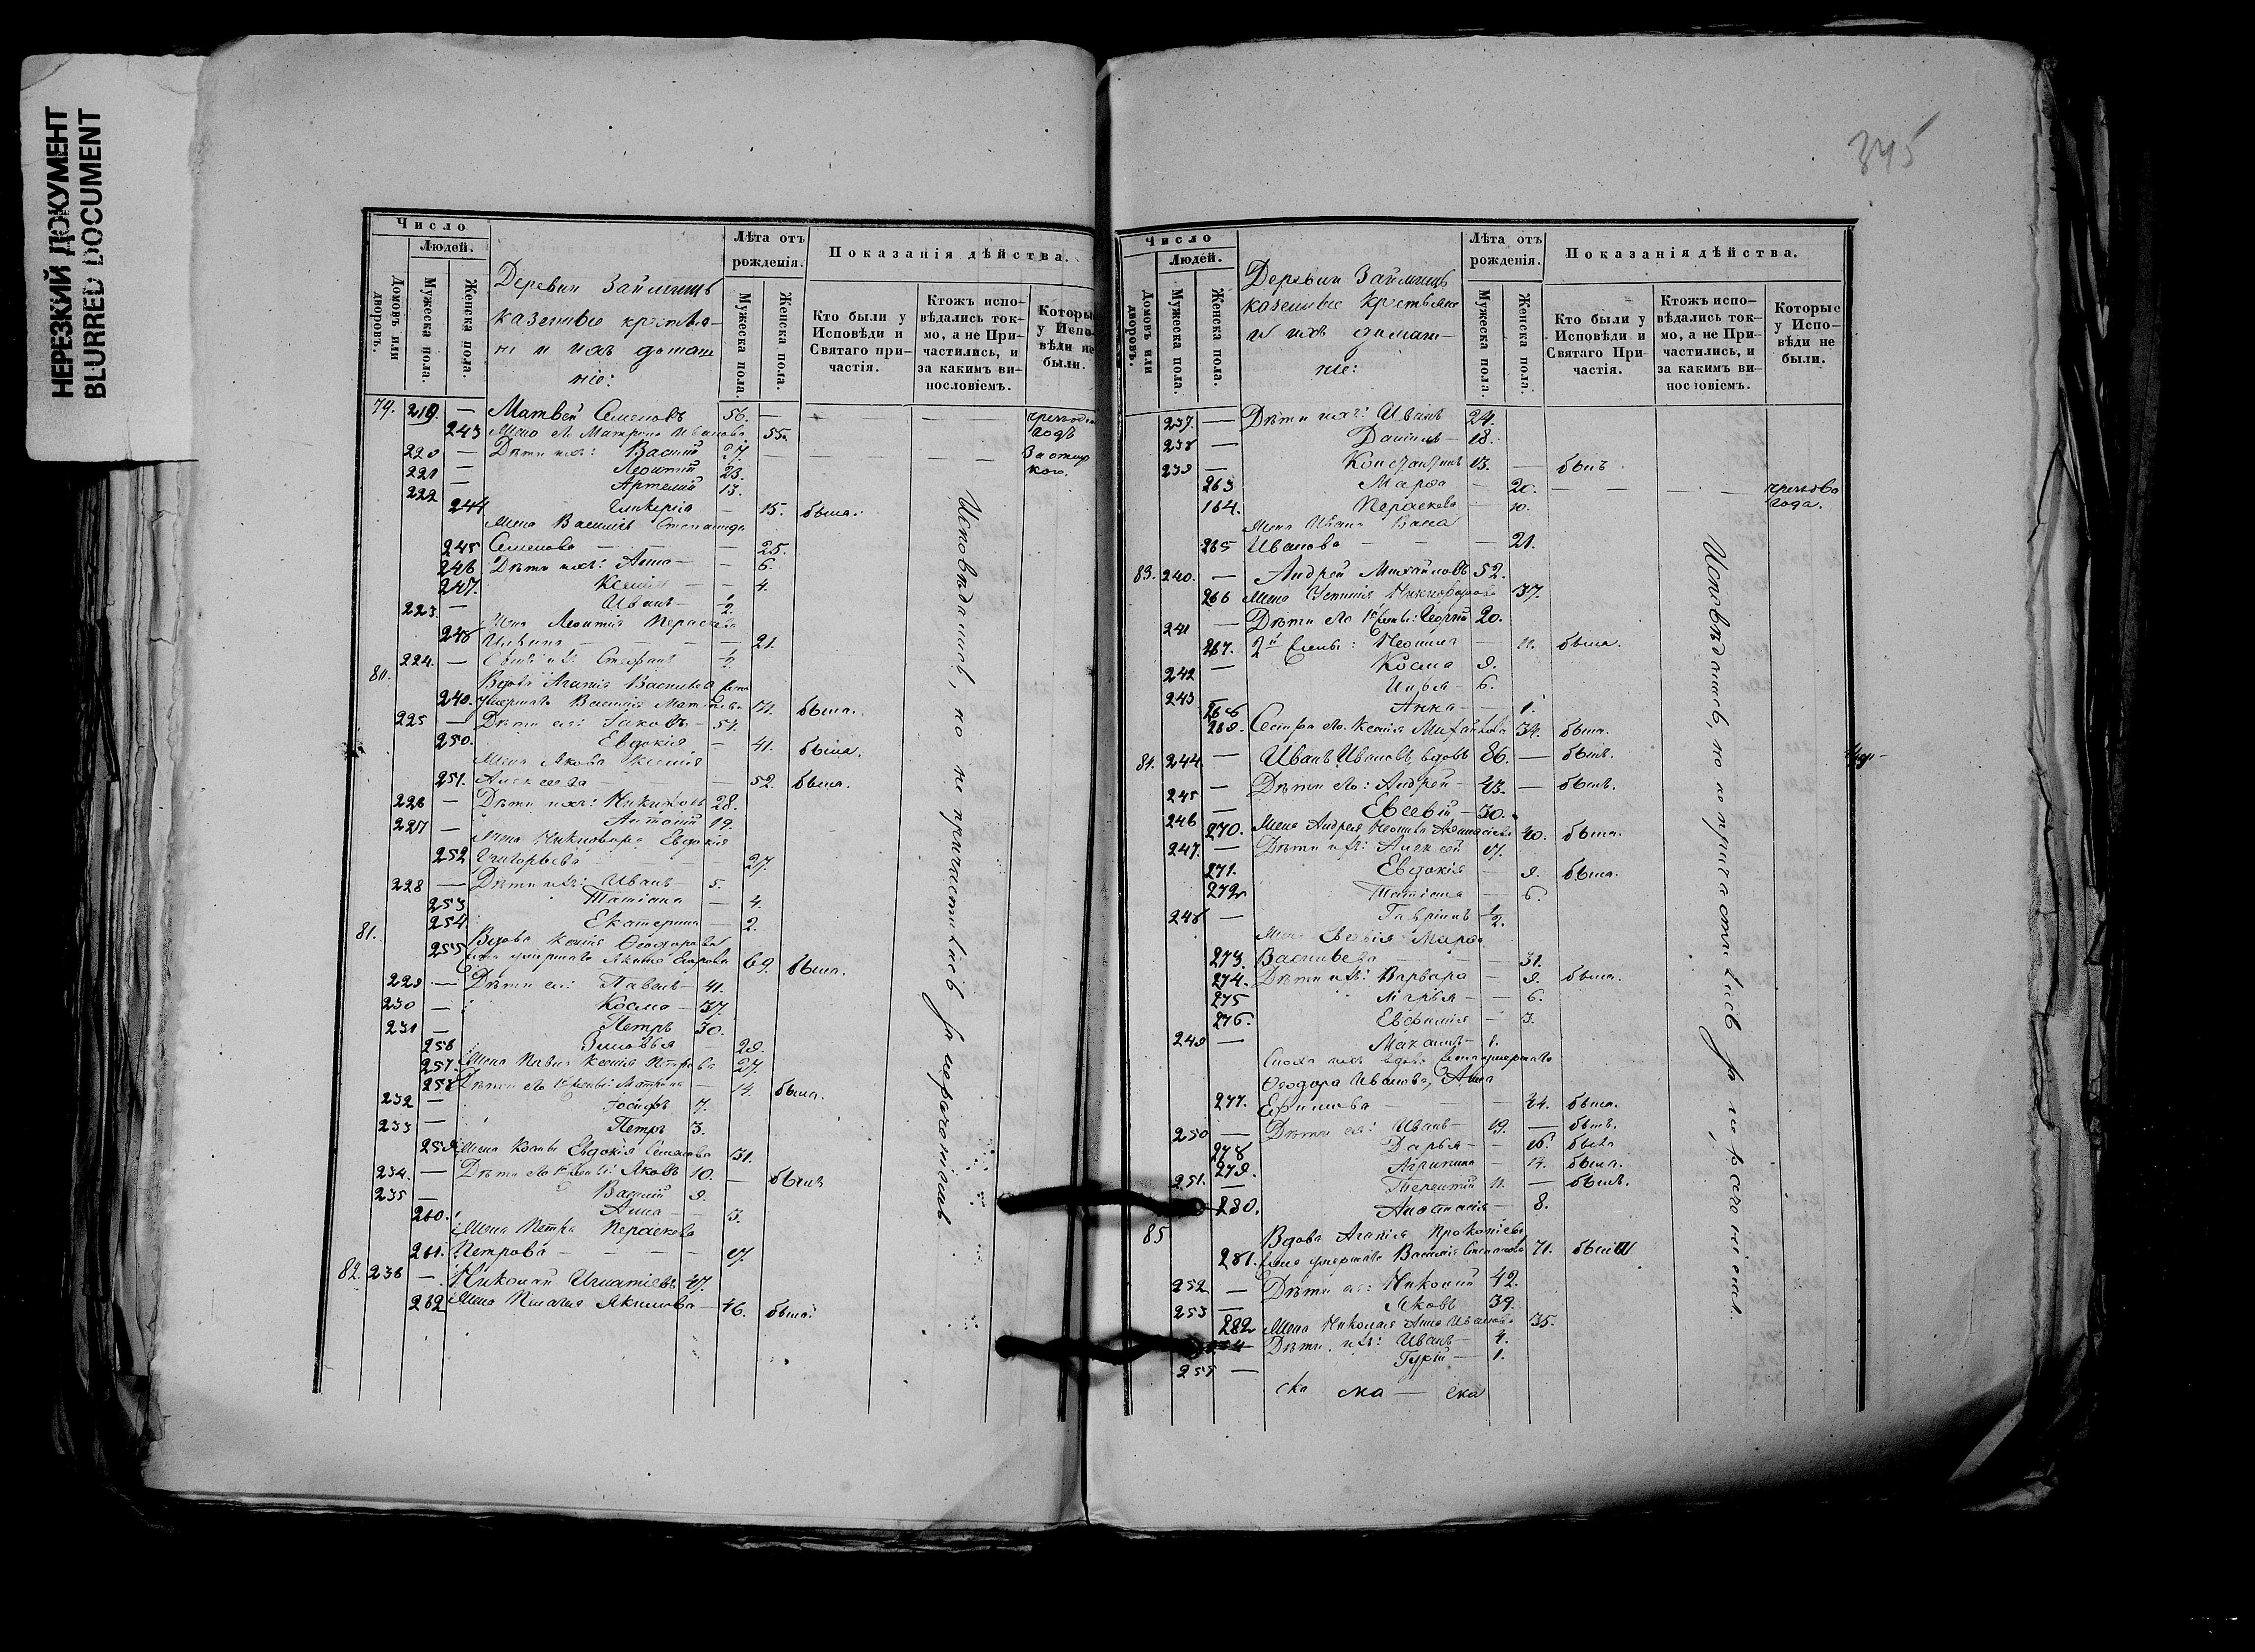 НЕРЕЗКИЙ ДОКУМЕНТ
BLURRED DOCUMENT
Число
Людей.
Домовъ или дворовъ.
Мужеска пола.
Женска пола.
Деревни Займищъ
казенные крестья-
не и ихъ домаш
ніе:
Лѣта отъ рожденія.
Мужеска пола.
Женска пола.
Показанія дѣйства.
Кто были у Исповѣди и Святаго при-частія.
Ктожъ испо-вѣдались ток-мо, а не При-частились, и за какимъ ви-нословіемъ.
Которые у Испо-вѣди не были.
79. 219. — Матвей Семеновъ 56. —
243 Жена его Матрона Иванова 55.
220 — Дѣти ихъ: Василій 27. —
221 — Леонтій 23.
222 — Артемій 13.
244 — 15. была.
Жена Василія Степанида
245 Семенова — 25.
246 Дѣти ихъ: Анна — 6.
247. Ксенія — 4.
223. — Иванъ — 1/2.
Жена Леонтія Параскева
248 — 21.
224. — Сынъ ихъ: Стефанъ 1/2.
80. Вдова Агапія Васильева
249. умершаго Василія была.
225 — Дѣти ея: Іаковъ — 51.
250. Евдокія — 41. была.
Жена Якова Ксенія
251. Алексеева — 52. была.
226 — Дѣти ихъ: Никифоръ 28.
227 — Антоній 19.
Жена Никифора Евдокія
252 Григорьева 27.
228 — Дѣти ихъ: Иванъ — 5.
253 Татіана — 4.
254 Екатерина — 2.
81. Вдова Ксенія Ѳеодорова
255 умершаго 69. была.
229 — Дѣти ея: Павелъ — 41.
230 — Косма — 37.
231 — Петръ 30.
256 Зиновья 28.
257. Жена Павла Ксенія Петрова 27.
258 Дѣти его Матрона — 14. была.
232 — Іосифъ 7.
233 — Петръ 3.
259 Жена Космы Евдокія 31.
234. — Дѣти его Яковъ 10. — былъ
235 — Василій 9.
260. Анна — 3.
Жена Петра Параскева
261. Петрова —
82. 236 — Николай Игнатіевъ 47.
262 Жена Пелагея Якимова — 46. была.
Исповѣдались, но не причастились за нерачениемъ.
345
Число
Людей.
Домовъ или дворовъ.
Мужеска пола.
Женска пола.
Деревни Займищъ
казенные крестьяне
и ихъ домаш-
ніе:
Лѣта отъ рожденія.
Мужеска пола
Женска пола.
Показанія дѣйства.
Кто были у Исповѣди и Святаго При-частія.
Ктожъ испо-вѣдались ток-мо, а не При-частились, и за какимъ ви-нословіемъ.
Которые у Испо-вѣди не были.
237. — Дѣти ихъ: Иванъ 24.
238 — Даніилъ — 18.
239 — Константинъ 13. — былъ
263 Марѳа — 20.
164. Параскева — 10.
Жена Ивана
265 Иванова — 21.
83. 240. — Андрей Михайловъ 52.
266 Жена Никифорова 37.
241 — Дѣти его Георгій 20.
267. 2й жены: Неонила — 11. была.
242 — Косма 9.
243 Илья — 6.
268 Анна — 1.
269. Сестра его Ксенія Михайлова 34. была.
84. 244 — Иванъ Ивановъ, вдовъ 86. — былъ.
245 — Дѣти его: Андрей — 43. — былъ.
246 — Евсевій — 30.
270. Жена Андрея 40. была.
247. — Дѣти ихъ: Алексей 17.
271. Евдокія — 9. была.
272 Татіана — 6.
248 — Гавріилъ 1/2.
Жена Евсевія Марѳа
273. Васильева — 31.
274. Дѣти ихъ: Варвара — 9. была.
275 Дарья — 6.
276. Евфимія — 3.
249 — Михаилъ — 1.
Сноха ихъ вдова жена умершаго
Ѳеодора Иванова, Анна
277. Ефимова — 44. была.
250 — Дѣти ея: Иванъ — 19. — былъ.
278 Дарья — 16. была
279. Агрипина — 14. была.
251. — Терентій 11. — былъ.
280. Анастасія — 8.
85 Вдова Агапія Прокопіева
281. жена умершаго Василія Степанова 71. была
252 — Дѣти ея: Николай 42.
253 — Яковъ 39.
282 Жена Николая Анна Иванова 35.
254 Дѣти ихъ: Иванъ — 4.
255 — Гурій — 1.
ска ска — ска
Исповѣдались, но не причастились за нерачениемъ.